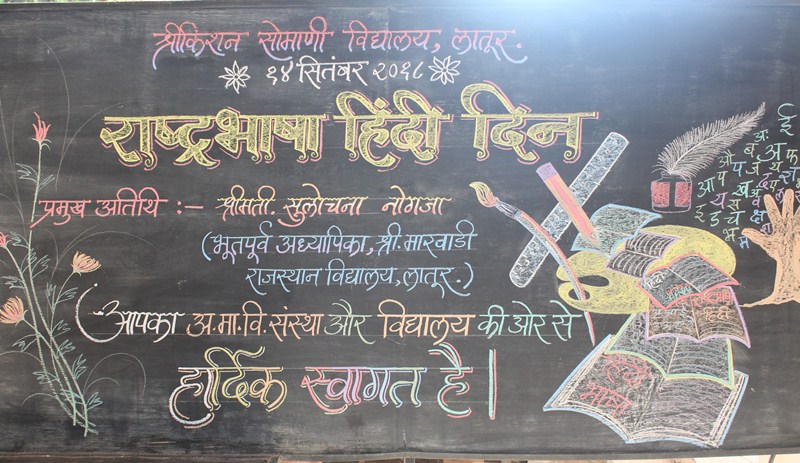 श्रीकिशन सोमाणी विद्यालय, लातूर.
१४ सितंबर २०१८
राष्ट्रभाषा हिंदी दिन
प्रमुख अतिथि :- श्रीमती. सुलोचना नोगजा
(भूतपूर्व अध्यापिका, श्री. मारवाडी
राजस्थान विद्यालय, लातूर.)
आपका अ.मा.वि. संस्था और विद्यालय की ओर से
हार्दिक स्वागत है|